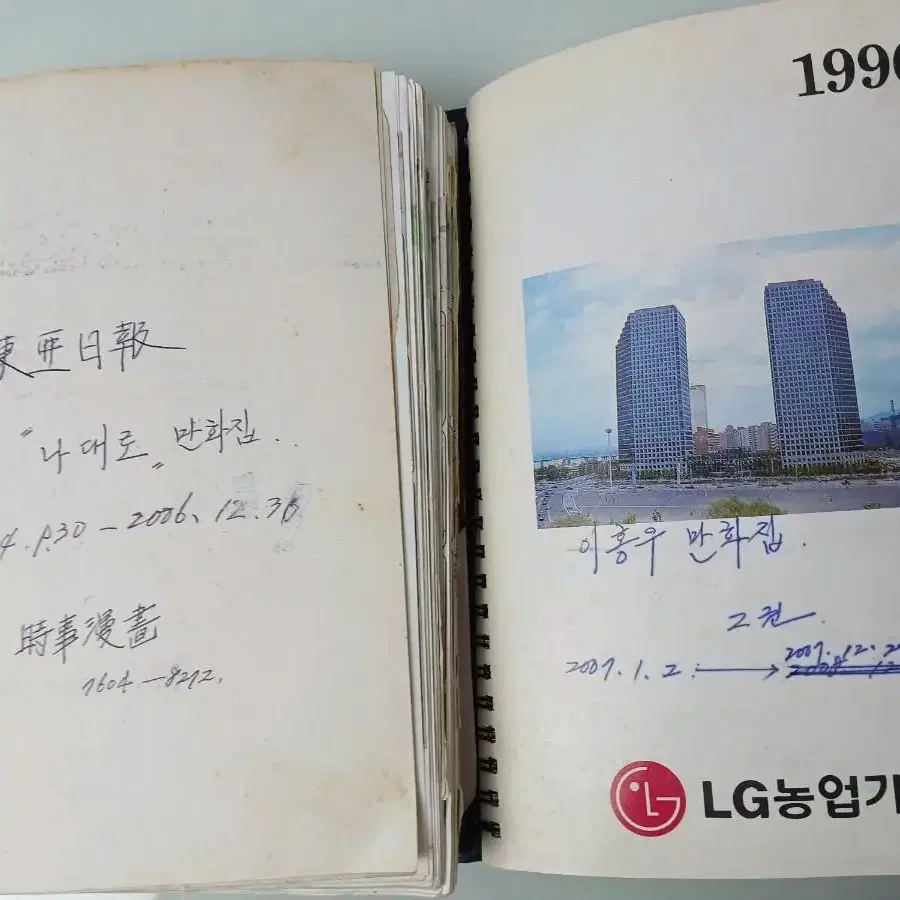 東亜日報
"나대로" 만화집..
4.1.30 - 2006. 12. 30
時事漫畵
7604 - 8272.
1996
이홍우 만화집.
2권.
2007. 12. 2
2007. 1. 2. →
LG농업기